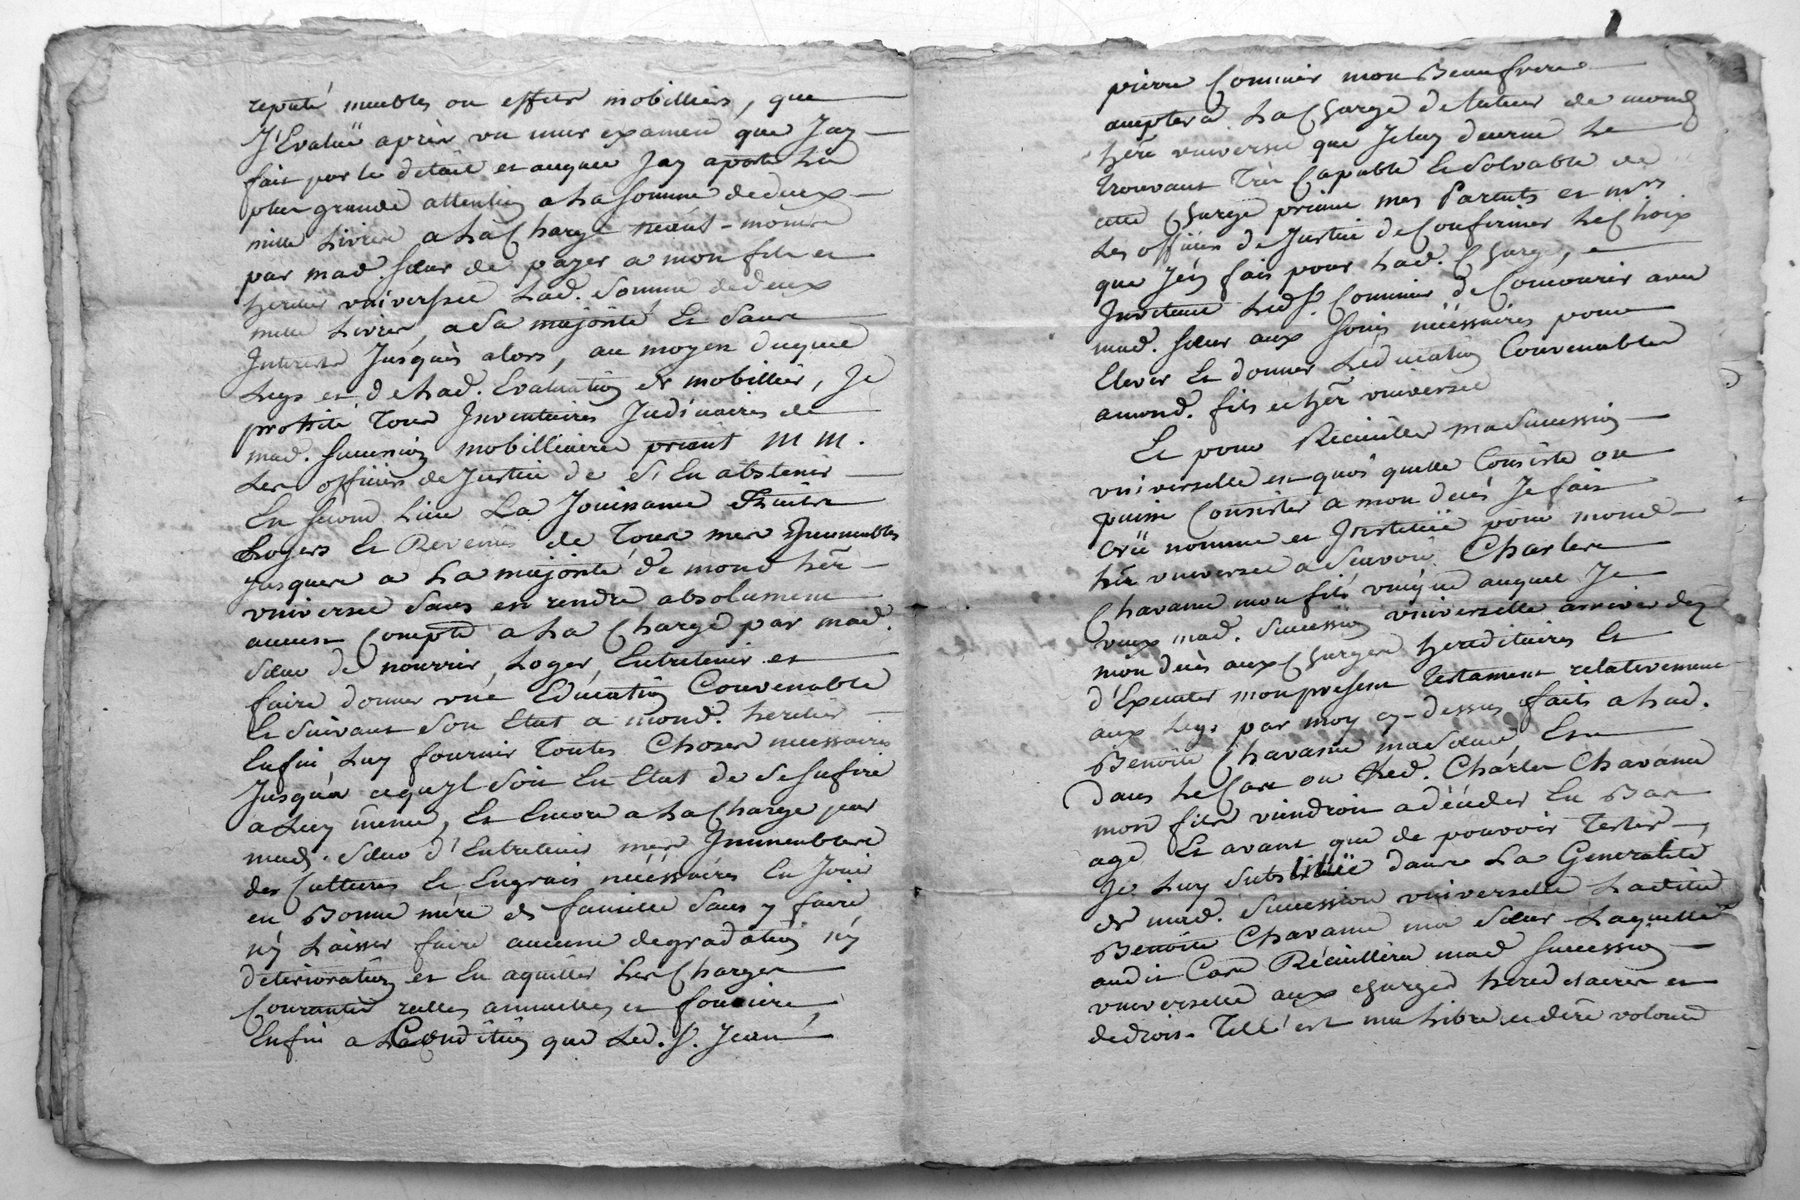 reputé meubles ou effets mobilliers, que
J'Evalüe après un mur examen que Jay
fait par le détail et auquel Jay aporté la
plus grande attention a la somme de deux
mille Livres a la Charge néant-moins
par mad. sœur de payer a mon fils et
heritier universel lad. somme de deux
mille Livres, a sa majorité Et sans
Interest Jusques alors, au moyen duquel
Legs et de lad. Evaluation de mobillier, Je
prohibe tous Inventaires Judiciaires de
mad. succession mobilliaire priant MM.
Les officiers de Justice de s'En abstenir
En second lieu La Jouissance fruits
Loyers Et Revenus de tous mes Immeubles
jusques a La majorité de mond hér
universel sans en rendre absolument
aucun Compte a La Charge par mad.
sœur de nourrir, Loger, Entretenir et
faire donner une Education Convenable
Et suivant son Etat a mond. heritier
Enfin Luy fournir toutes Choses necessaires
Jusqua ce quyl soit En Etat de se sufire
a Luy même, Et Encore a La Charge par
mad. sœur d'Entretenir mes Immeubles
des Cultures Et Engrais nécéssaires En Jouir
en Bonne mère de famille sans y faire
ny Laisser faire aucune degradation ny
déterioration et En aquitter Les Charges
Courantes réelles annuelles et foncière,
Enfin a La Condition que Led. S. Jean
pierre Commier mon Beaufrere
acceptera La Charge de tuteur de mond
hére universel que Je luy decerne Le
trouvant très Capable Et solvable de
cette Charge priant mes Parents et mrs
Les officiers de Justice de Confirmer Le Choix
que J'en fais pour lad. Charge, et
Invitant Led S. Commier de Concourir avec
mad. sœur aux soins nécéssaires pour
Elever Et donner Leducation Convenable
amond. fils et hér universel
Et pour Récüillir ma succession
universelle en quoi quelle Consiste ou
puisse Consister a mon décès Je fais
crée nomme et Institüe pour mond
hér universel a scavoir Charles
Chavanne mon fils unique auquel Je
veux mad. succession universelle arriver dez
mon decès aux Charges hereditaires Et
d'Executer mon present Testament relativement
aux Legs par moy cy-dessus faits a lad.
Benoite Chavanne ma sœur Et
dans Le Cas ou Led. Charles Chavanne
mon fils viendroit a décéder En Bas
age Et avant que de pouvoir tester,
Je Luy substitüe dans La Generalité
de mad. succession universelle Ladite
Benoite Chavanne ma sœur Laquelle
audit Cas Récüillira mad succession
universelle aux charges hereditaires et
dedroit. Tell'est ma Libre et dére volonté